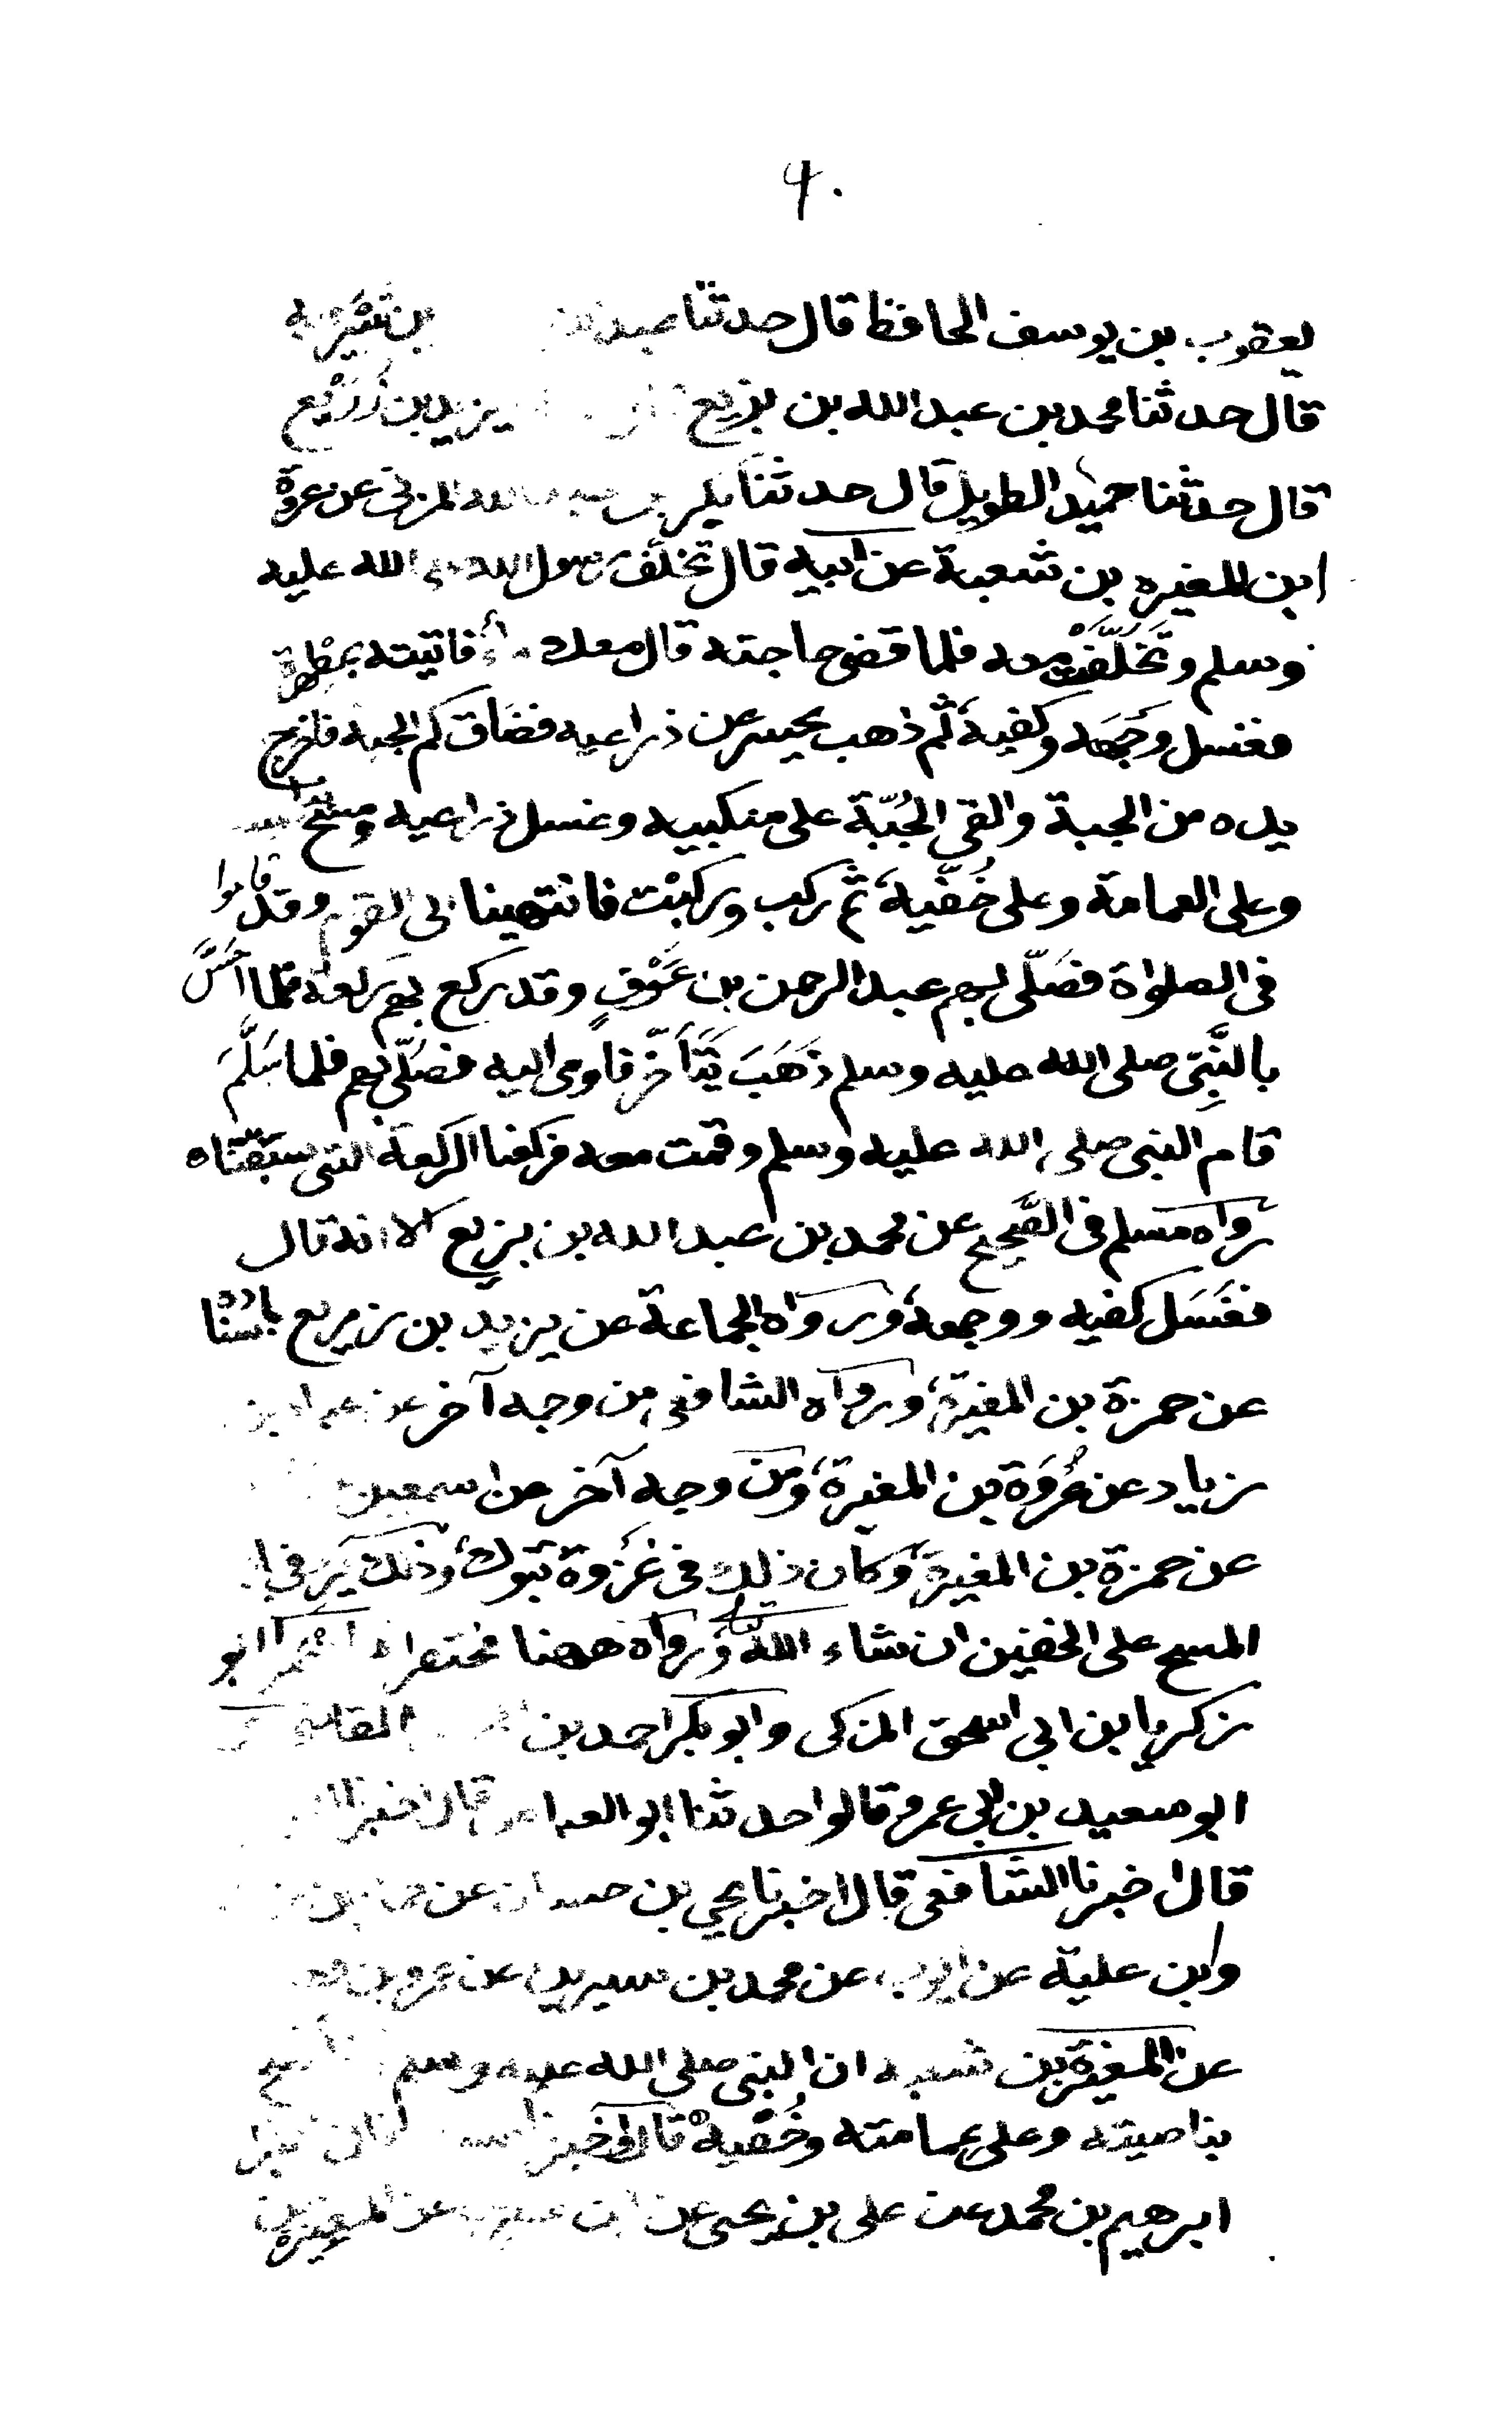 ٩٠
يعقوب بن يوسف الحافظ قال حدثنا بن شيرويه
قال حدثنا محمد بن عبد الله بن بزيع يزيد بن زُرَيْع
قال حدثنا حميد الطويل قال حدثنا بكر بن عبد الله المزنى عن عروة
ابن المغيره بن شعبة عن ابيه قال تخلَّف رسول الله صلى الله عليه
وسلم وتَخَلَّفت معه فلما قضى حاجته قال معك ماء فاتيته بمطهرة
فغسل وجهه وكفيه ثم ذهب يحسر عن ذراعيه فضاق كم الجبة فاخرج
يده من الجبة والقى الجُبّة على منكبيه وغسل ذراعيه ومسح
وعلى العمامة وعلى خُفّيه ثم ركب وركبْت فانتهينا الى القوم وقد قاموا
فى الصلواة فصَلّى بهم عبد الرحمن بن عَوْفٍ وقد ركع بهم ركعة فلما احَسَّ
بالنَّبِىّ صلى الله عليه وسلم ذَهَبَ يَتَأَخّر فاومى اليه فصَلّى بهم فلما سَلَّمَ
قام النبى صلى الله عليه وسلم وقمت معه فركعنا الركعة التى سبقتناه
رواه مسلم فى الصَّحيح عن محمد بن عبد الله بن بزيع الا انه قال
فغَسَل كفيه ووجهه ورواه الجماعة عن يزيد بن زريع
عن حمزة بن المغيرة ورواه الشافعى من وجه آخر عن عباد بن
زياد عن عُروَة بن المغيرة ومن وجه آخر عن اسمعيل
عن حمزة بن المغيرة وكان ذلك فى غزوة تبوك وذلك يَرِد فى
المسح على الخفين ان شاء الله ورواه ههنا مختصرا ابو
زكريا ابن ابى اسحق المزكى وابو بكر احمد بن القاضى
ابو سعيد بن ابى عمرو قالوا حدثنا ابو العباس قال اخبرنا
قال اخبرنا الشافعى قال اخبرنا يحيى بن حسان عن حماد بن زيد
وابن علية عن ايوب عن محمد بن سيرين عن عمرو بن
عن المغيرة بن شعبة ان النبى صلى الله عليه وسلم
بناصيته وعلى عمامته وخُفّيه قال واخبرنا
ابرهيم بن محمد عن على بن يحيى عن ابن سيرين عن المغيرة بن